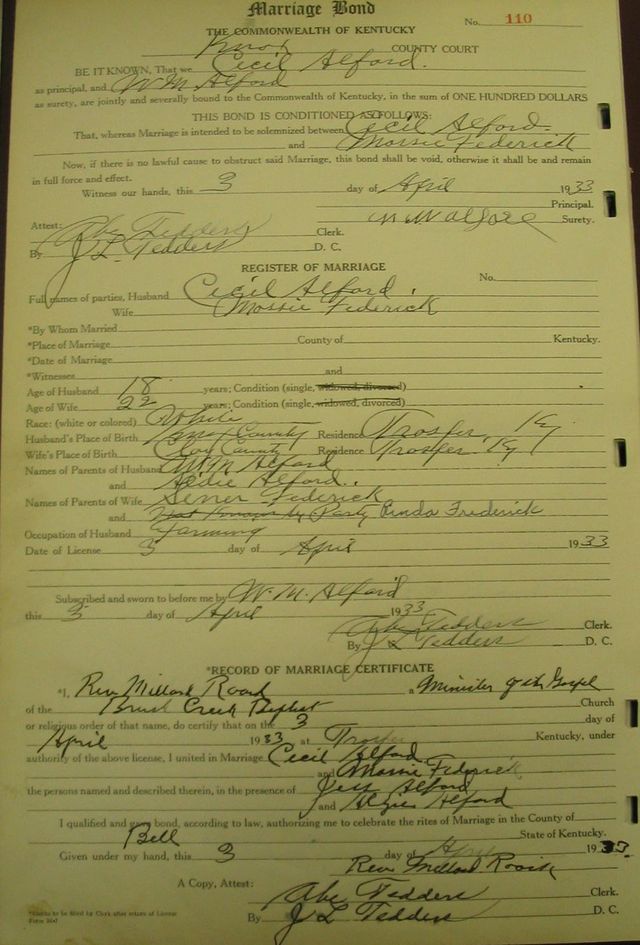 Marriage Bond
No. 110
THE COMMONWEALTH OF KENTUCKY
Knox COUNTY COURT
BE IT KNOWN, That we Cecil Alford.
as principal, and W. M. Alford
as surety, are jointly and severally bound to the Commonwealth of Kentucky, in the sum of ONE HUNDRED DOLLARS
THIS BOND IS CONDITIONED AS FOLLOWS:
That, whereas Marriage is intended to be solemnized between Cecil Alford.
and Mossie Federick
Now, if there is no lawful cause to obstruct said Marriage, this bond shall be void, otherwise it shall be and remain
in full force and effect.
Witness our hands, this 3 day of April 1933
Principal.
Attest: W M Alford Surety.
Abe Tedders Clerk.
By J L Tedders D. C.
REGISTER OF MARRIAGE
No.
Full names of parties, Husband Cecil Alford.
Wife Mossie Federick
*By Whom Married
*Place of Marriage County of Kentucky.
*Date of Marriage
*Witnesses and
Age of Husband 18 years; Condition (single, widowed, divorced)
Age of Wife 22 years; Condition (single, widowed, divorced)
Race: (white or colored) White
Husband's Place of Birth Knox County Residence Trosper, Ky
Wife's Place of Birth Clay County Residence Trosper, Ky
Names of Parents of Husband W M Alford
and Aldie Alford.
Names of Parents of Wife Federick
and Not Known by Party Rinda Frederick
Occupation of Husband Farming
Date of License 3 day of April 1933
Subscribed and sworn to before me by W. M. Alford
this 3 day of April 1933
Abe Tedders Clerk.
By J L Tedders D. C.
*RECORD OF MARRIAGE CERTIFICATE
*I, Rev Millard a Minister of the Gospel
of the Brush Creek Baptist Church
or religious order of that name, do certify that on the 3 day of
April 1933 at Trosper Kentucky, under
authority of the above license, I united in Marriage Cecil Alford
and Mossie Federick
the persons named and described therein, in the presence of Jess Alford
and Alford
I qualified and gave bond, according to law, authorizing me to celebrate the rites of Marriage in the County of
Bell State of Kentucky.
Given under my hand, this 3 day of April 1933
Rev Millard
A Copy, Attest: Abe Tedders Clerk.
*Blanks to be filled by Clerk after return of License
By J L Tedders D. C.